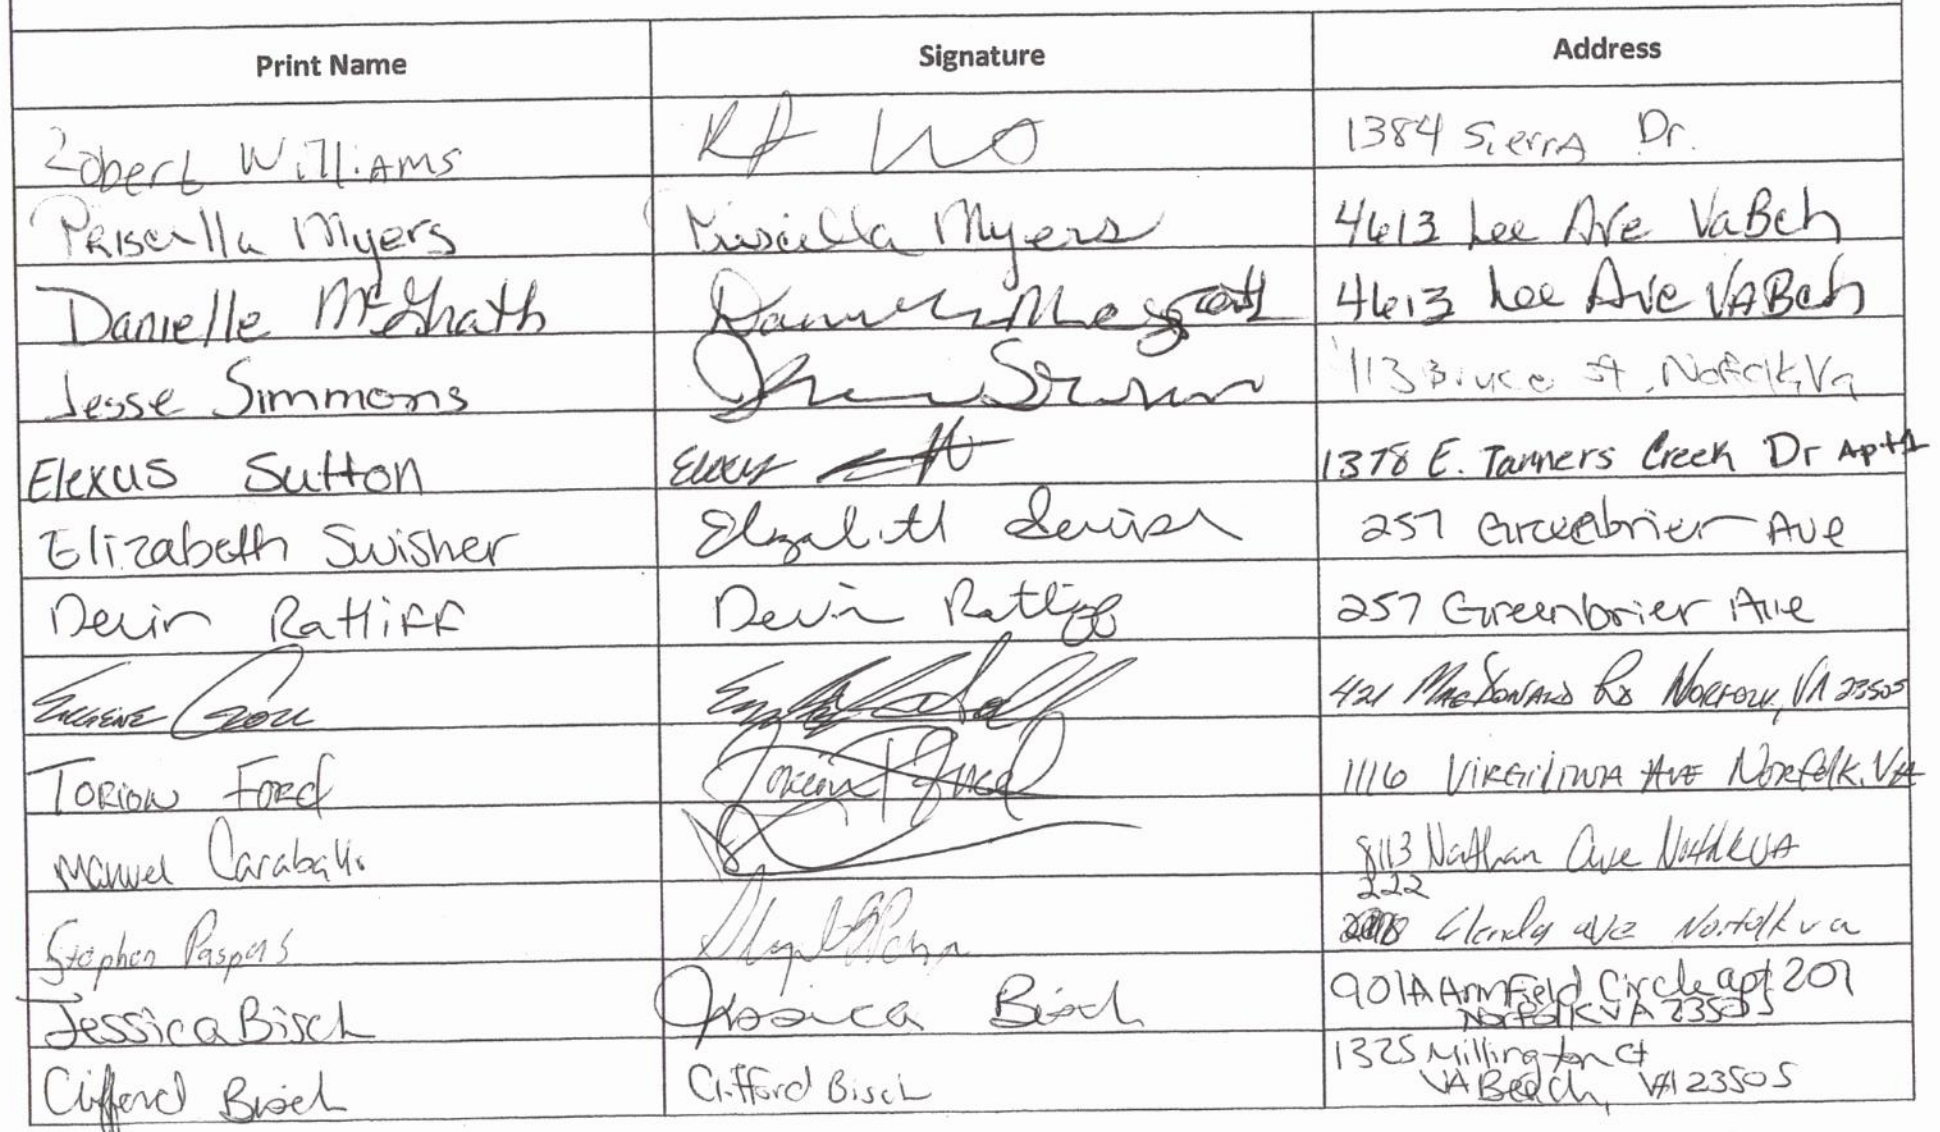 Print Name Signature Address
Robert Williams 1384 Sierra Dr.
Priscilla Myers Priscilla Myers 4613 Lee Ave Va Bch
Danielle McGrath 4613 Lee Ave VA Bch
Jesse Simmons 113 Bruce st, Norfolk, Va
Elexus Sutton 1378 E. Tanners Creek Dr Apt 1
Elizabeth Swisher Elizabeth 257 Greenbrier Ave
Devin Ratliff Devin Ratliff 257 Greenbrier Ave
Eugene 421 MacDonald Rd Norfolk, VA 23505
Torion Ford 1116 Ave Norfolk, VA
Manuel Caraballo 8113 Nathan Ave VA
222
Stephen ave Norfolk va
Jessica Bisch Jessica Bisch 901A Armfield Circle apt 201
Norfolk VA 23505
Clifford Bisch Clifford Bisch 1325 Millington Ct
VA Beach, VA 23505